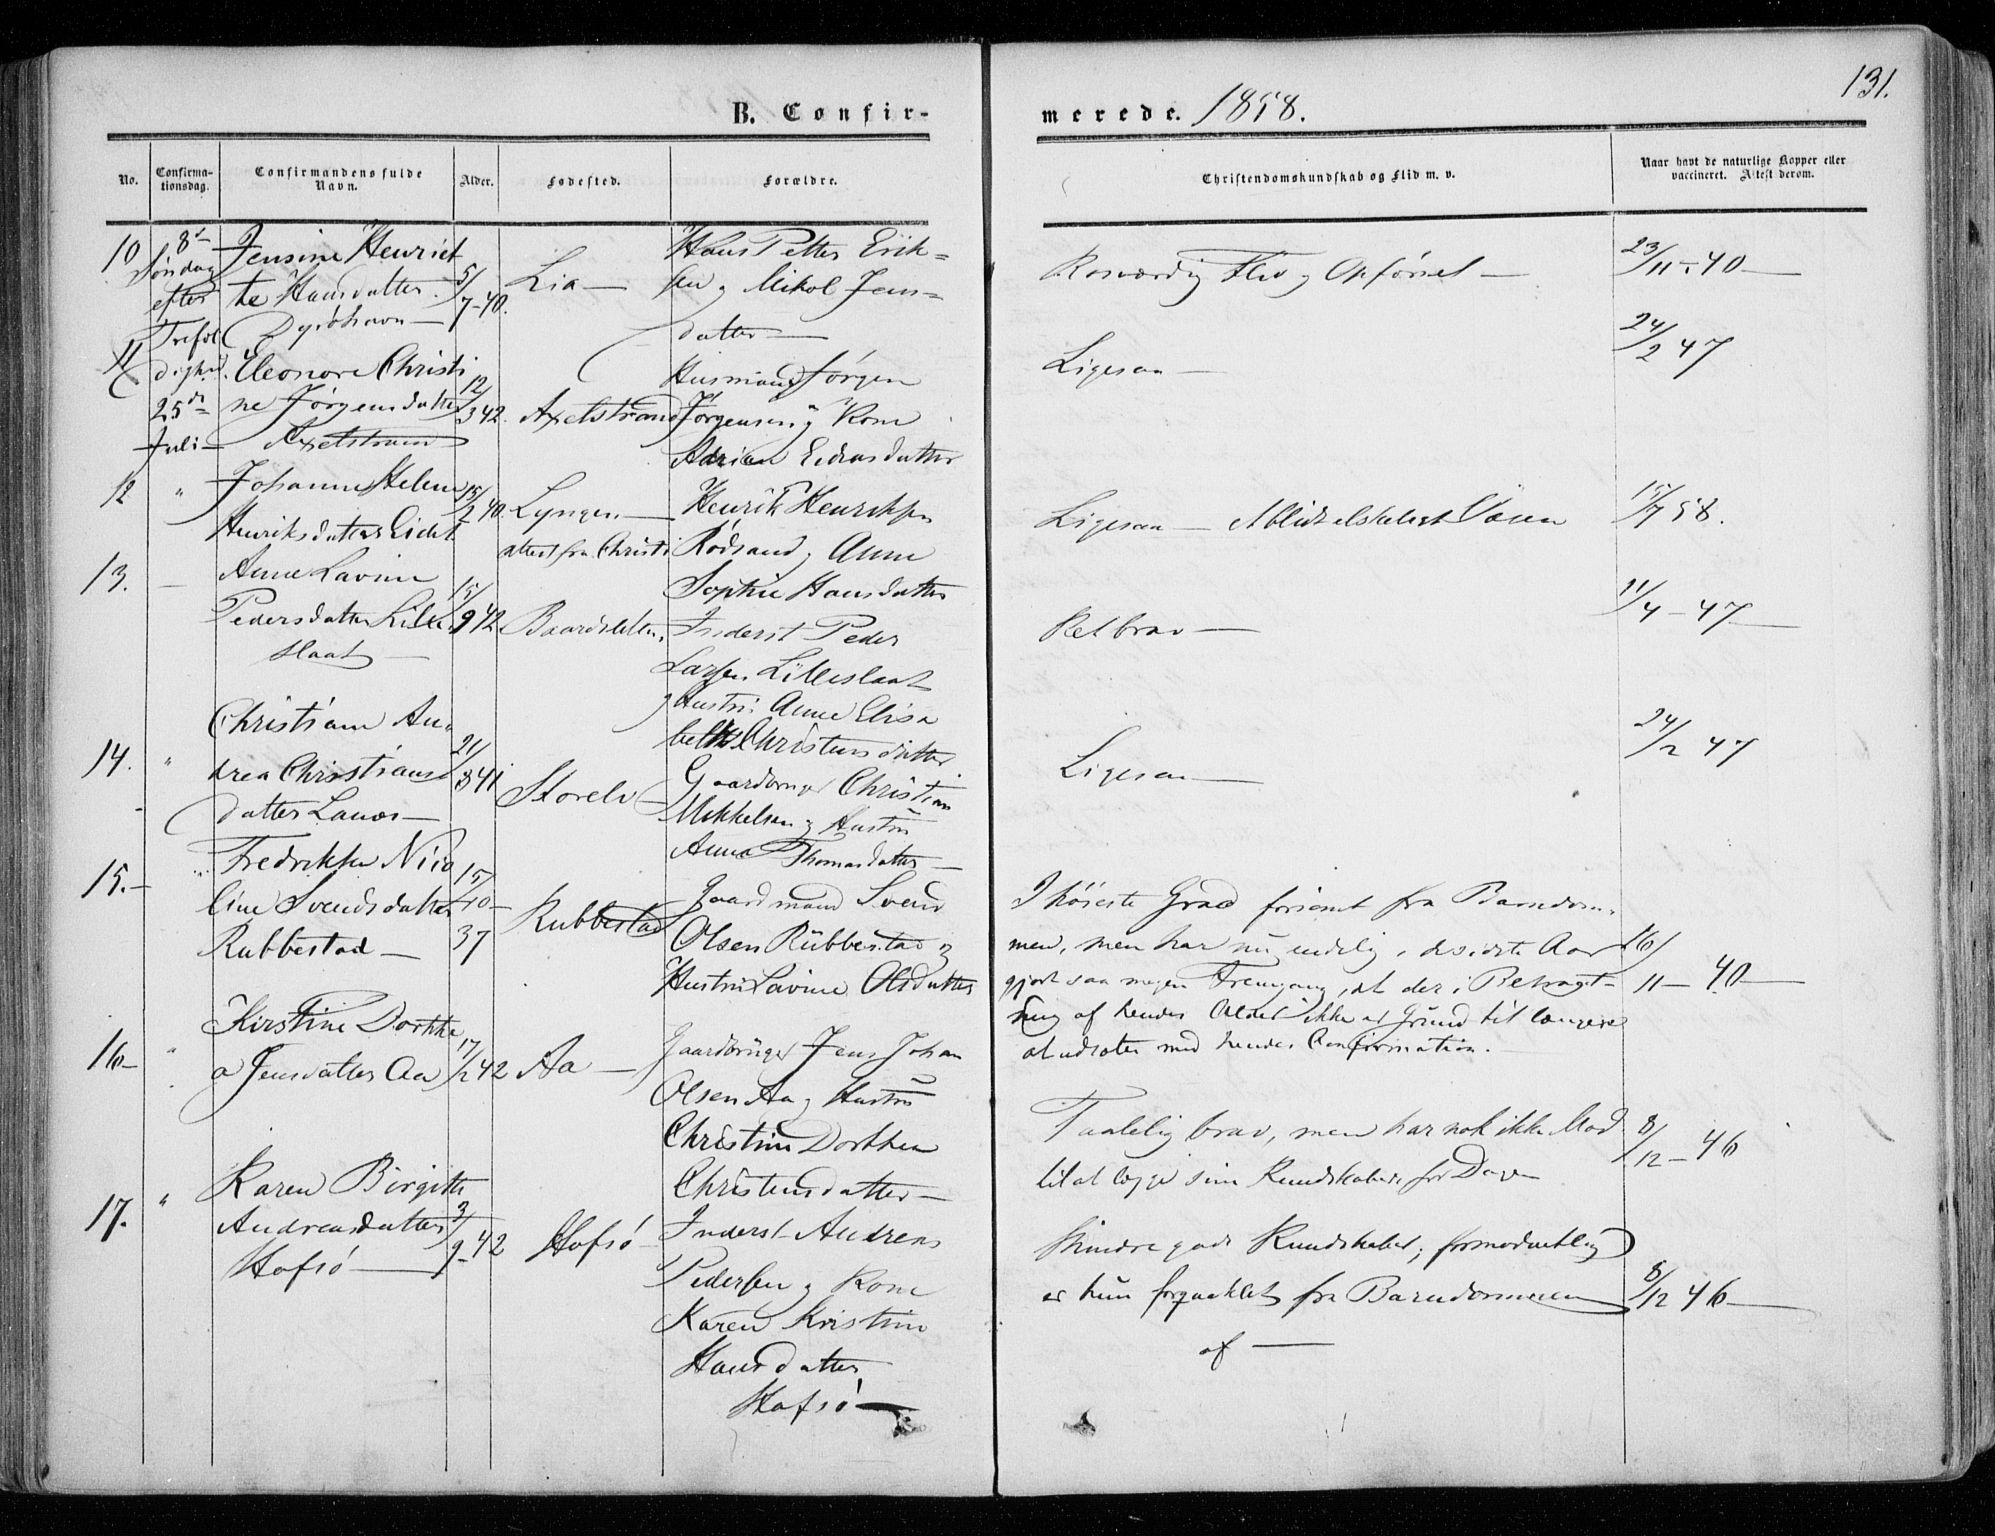 131.
B. Confir-
merede. 1858.
No.
Confirma-
tionsdag.
Confirmandens fulde
Navn.
Alder.
Fødested.
Forældre.
Christendomskundskab og Flid m. v.
Naar havt de naturlige Kopper eller
vaccineret. Attest derom.
10
8de
Søndag
efter
Trefol
dighed.
25de
Juli
Jensine Henriet
te Hansdatter
Dyröhavn
5/7-40.
Lia
Hans Petter Erik=
sen og Mikol Jens=
datter
Rosværdig Flid og Opførsel
23/11-40
11
Eleonore Christi
ne Jørgensdatter
Axelstrand
12/3 42.
Axelstrand
Husmand Jørgen
Jørgensen og Kone
Adrian Endredatter
Ligesaa
24/2 47
12
"
Johanne Helene
Henriksdatter Eidet
15/2 40.
Lyngen
attest fra Christi
Henrik Henriksen
Rödsand og Anne
Sophie Hansdatter
Ligesaa
15/7 58.
13.
Anne Lavine
Pedersdatter Lille
slaat
15/9 42
Baardsletten
Inderst Peder
Larsen Lilleslaat
og Hustru Anne Elisa
beth Christensdatter
Ret brav
11/4-47
14.
"
Christiane An=
drea Christians
datter Lanes
21/8 41
Storelv
Gaardbruger Christian
Mikkelsen og Hustru
Anna Thomasdatter
Ligesaa
24/2 47
15.
"
Fredrikke Nico
line Svendsdatter
Rubbestad
15/10
37
Rubbestad
Gaardmand Svend
Olsen Rubbestad og
Hustru Lavine Olsdatter
I höieste Grad forsømt fra Barndom=
men, men har nu endelig i de sidste Aar
gjort saa megen Fremgang, at der i Betragt=
ning af hendes Alder ikke er Grund til længere
at udsætte med hendes Confirmation.
16/11-40
16
"
Kirstine Dorthe
a Jensdatter Aa
17/2 42
Aa
Gaardbruger Jens Johan
Olsen Aa og Hustru
Christine Dorthea
Christensdatter
Taalelig brav, men har nok ikke Mod
til at lægge sine Kundskaber for Dagen
8/12-46
17.
"
Karen Birgitte
Andreasdatter
Hofsö
3/9-42
Hofsö
Inderst Andreas
Pedersen og Kone
Karen Kristine
Hansdatter
Hofsö
Mindre gode Kundskaber; formodentlig
er hun forqvaklet fra Barndommen
af
8/12 46